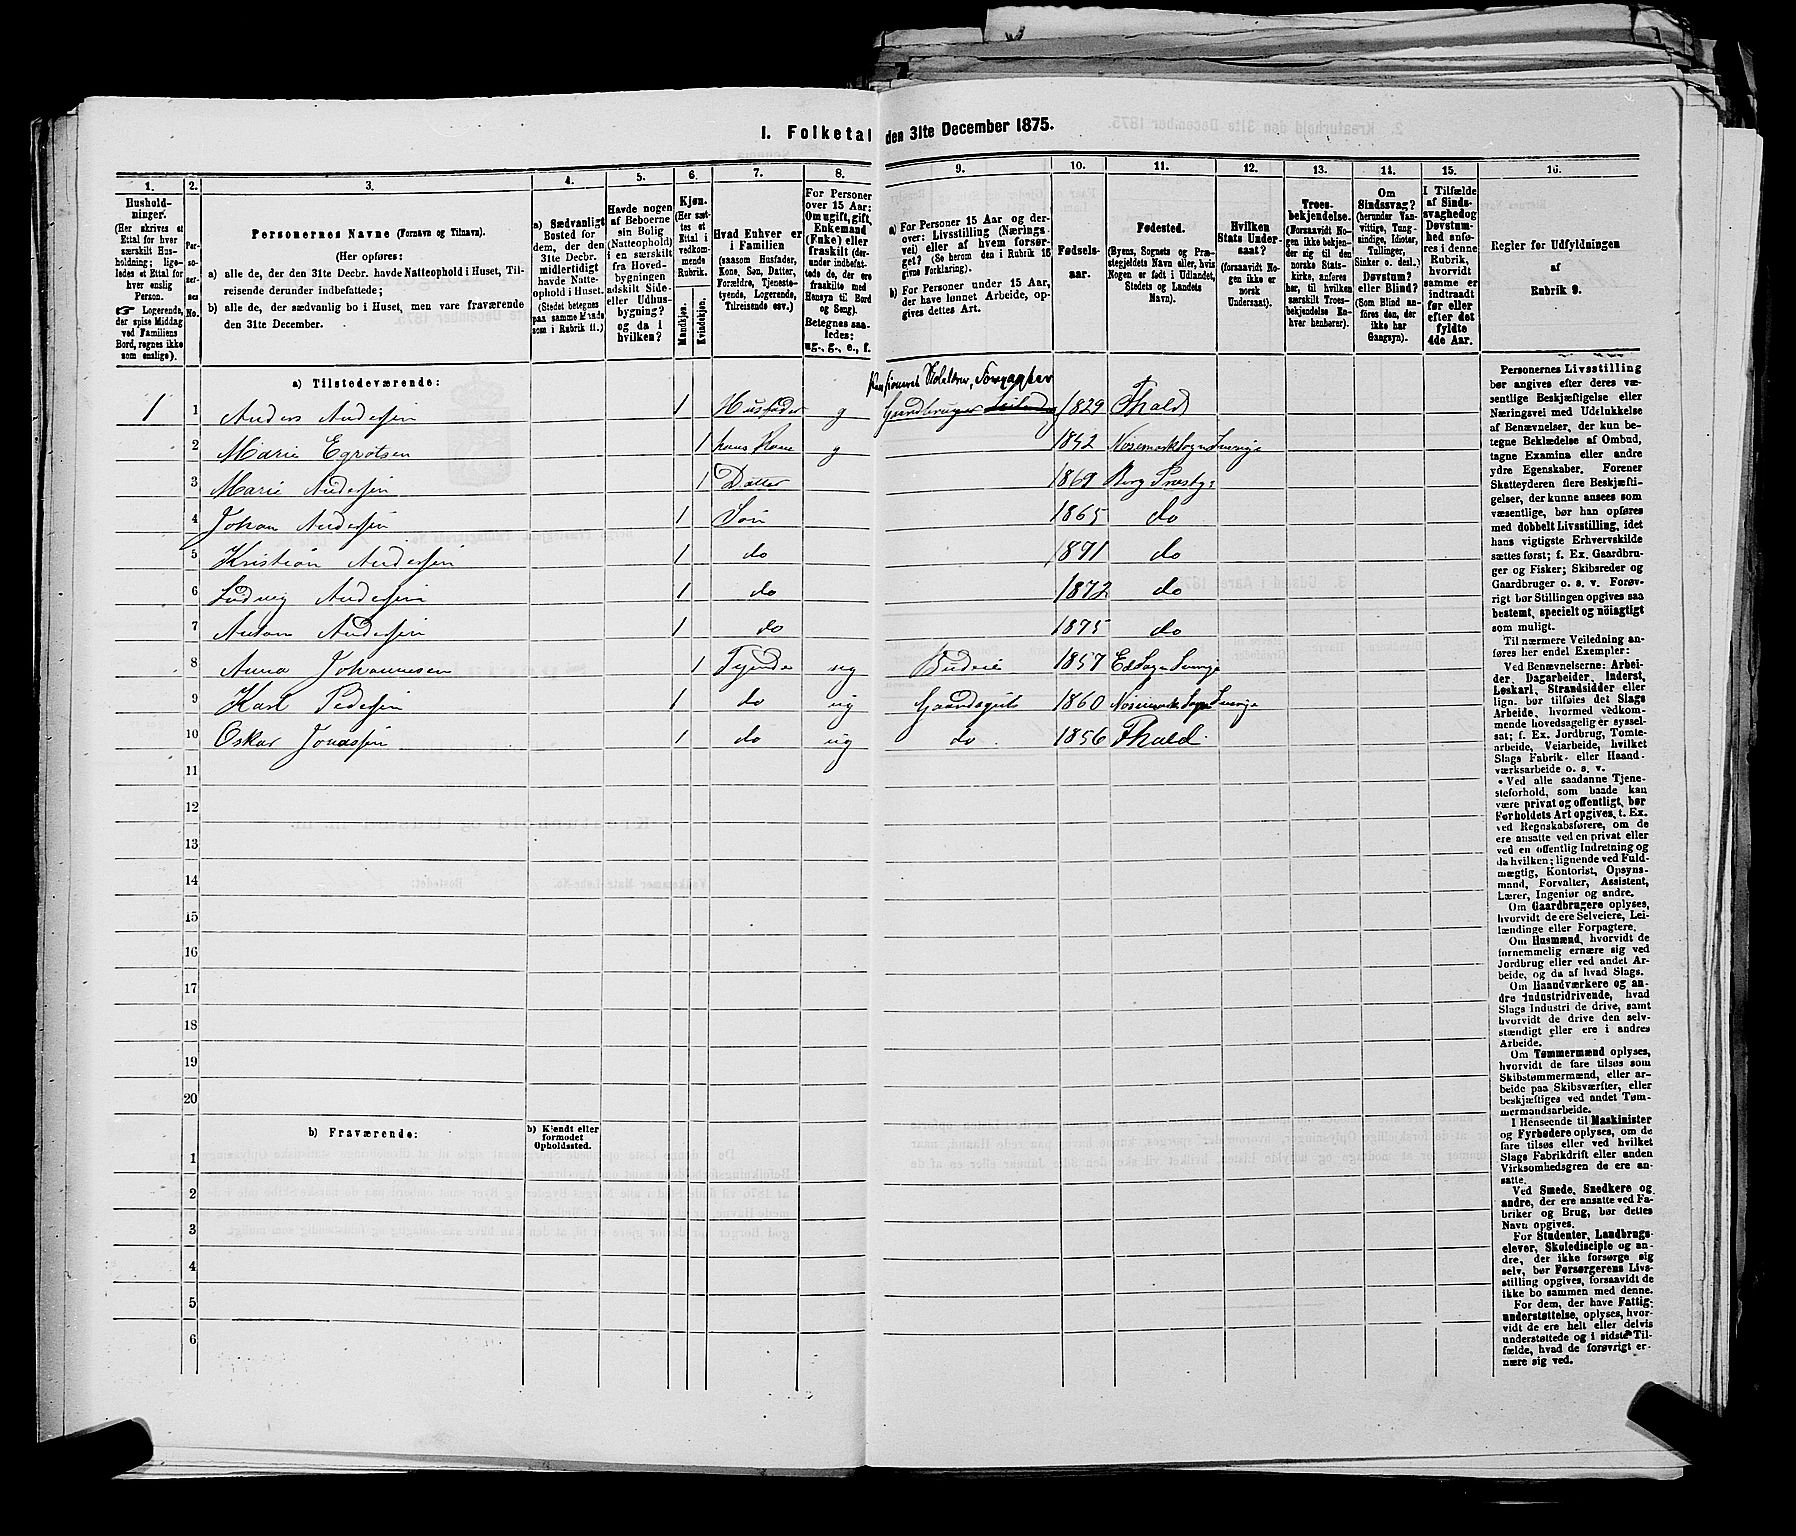 1. Folketal den 31te December 1875.
1. 2. 3. 4. 5. 6. 7. 8. 9. 10. 11. 12. 13. 14. 15. 16.
Hushold-
ninger.
(Her skrives et
Ettal for hver
særskilt Hus-
holdning; lige-
ledes et Ettal for
hver enslig
Person.
☞ Logerende,
der spise Middag
ved Familiens
Bord, regnes ikke
som enslige).
Per-
so-
ner-
nes
No.
Personernes Navne (Fornavn og Tilnavn).
(Her opføres:
a) alle de, der den 31te Decbr. havde Natteophold i Huset, Til-
reisende derunder indbefattede;
b) alle de, der sædvanlig bo i Huset, men vare fraværende
den 31te December.
a) Sædvanligt
Bosted for
dem, der den
31te Decbr.
midlertidigt
havde Natte-
ophold i Huset.
(Stedet betegnes
paa samme Maade
som i Rubrik 11.)
Havde nogen
af Beboerne
sin Bolig
(Natteophold)
i en særskilt
fra Hoved-
bygningen
adskilt Side-
eller Udhus-
bygning?
og da i
hvilken?
Kjøn.
(Her sæt-
tes et
Ettal i
vedkom-
mende
Rubrik.
Mandkjøn.
Kvindekjøn.
Hvad Enhver er
i Familien
(saasom Husfader,
Kone, Søn, Datter,
Forældre, Tjeneste-
tyende, Logerende,
Tilreisende osv.)
For Personer
over 15 Aar:
Om ugift, gift,
Enkemand
(Enke) eller
fraskilt (der-
under indbefat-
tede de, der ere
fraskilte med
Hensyn til Bord
og Seng).
Betegnes saa-
ledes:
ug-, g-, e-, f.
a) For Personer 15 Aar og der-
over: Livsstilling (Nærings-
vei) eller af hvem forsør-
get? (Se herom den i Rubrik 16
givne Forklaring).
b) For Personer under 15 Aar,
der have lønnet Arbeide, op-
gives dettes Art.
Fødsels-
aar.
Fødested.
(Byens, Sognets og Præ-
stegjeldets Navn eller, hvis
Nogen er født i Udlandet,
Stedets og Landets
Navn).
Hvilken
Stats Under-
saat?
(forsaavidt No-
gen ikke er
norsk
Undersaat).
Troes-
bekjendelse.
(Forsaavidt No-
gen ikke bekjen-
der sig til den
norske Stats-
kirke, anføres
her, til hvilken
særskilt Troes-
bekjendelse En-
hver henhører).
Om
Sindssvag?
(herunder Van-
vittige, Tung-
sindige, Idioter,
Tullinger,
Sinker o. desl.)
Døvstum?
eller Blind?
(Som Blind an-
føres den, der
ikke har
Gangsyn).
I Tilfælde
af Sinds-
svaghed og
Døvstum-
hed anfø-
res i denne
Rubrik,
hvorvidt
samme er
indtraadt
før eller
efter det
fyldte
4de Aar.
Regler for Udfyldningen
af
Rubrik 9.
a) Tilstedeværende:
Pensioneret Forpagter
1 1 Anders Andersen 1 Husfader g Gardbruger 1829 Fhald
2 Marie 1 hans Kone g 1842 Nösemark Sogn Sverige
3 Marie Andersen 1 Datter Berg Præstgj
4 Johan Andersen 1 Søn 1865 do
5 Kristian Andersen 1 do 1871 do
6 Ludvig Andersen 1 do 1872 do
7 Anton Andersen 1 do 1875 do
8 Anna Johannesen 1 Tjende ug Budeie 1857 Ed Sogn Sverige
9 Karl Pedersen 1 do ug Gaardsgut 1860 Nösemark Sogn Sverige
10 Oskar 1 do ug do 1856 Fhald
11
12
13
14
15
16
17
18
19
20
b) Fraværende:
b) Kjendt eller
formodet
Opholdssted.
1
2
3
4
5
6
Personernes Livsstilling
bør angives efter deres væ-
sentlige Beskjæftigelse eller
Næringsvei med Udelukkelse
af Benævnelser, der kun be-
tegne Beklædelse af Ombud,
tagne Examina eller andre
ydre Egenskaber. Forener
Skatteyderen flere Beskjæfti-
gelser, der kunne ansees som
væsentlige, bør han opføres
med dobbelt Livsstilling, idet
hans vigtigste Erhvervskilde
sættes først; f. Ex. Gaardbru-
ger og Fisker; Skibsreder og
Gaardbruger o. s. v. Forøv-
rigt bør Stillingen opgives saa
bestemt, specielt og nöiagtigt
som muligt.
Til nærmere Veiledning an-
føres her endel Exempler:
Ved Benævnelserne: Arbei-
der, Dagarbeider, Inderst,
Løskarl, Strandsidder eller
lign. bør tilføies det Slags
Arbeide, hvormed vedkom-
mende hovedsagelig er syssel-
sat; f. Ex. Jordbrug, Tomte-
arbeide, Veiarbeide, hvilket
Slags Fabrik- eller Haand-
værksarbeide o. s. v.
Ved alle saadanne Tjene-
steforhold, som baade kan
være privat og offentligt, bør
Forholdets Art opgives, t. Ex.
ved Regnskabsførere, om de
ere ansatte ved en privat eller
ved en offentlig Indretning og
da hvilken; lignende ved Fuld-
mægtig, Kontorist, Opsyns-
mand, Forvalter, Assistent,
Lærer, Ingeniør og andre.
Om Gaardbrugere oplyses,
hvorvidt de ere Selveiere, Lei-
lændinge eller Forpagtere.
Om Husmænd, hvorvidt de
fornemmelig ernære sig ved
Jordbrug eller ved andet Ar-
beide, og da af hvad Slags.
Om Haandværkere og an-
dre Industridrivende, hvad
Slags Industri de drive, samt
hvorvidt de drive den selv-
stændigt eller ere i andres
Arbeide.
Om Tømmermænd oplyses,
hvorvidt de fare tilsøs som
Skibstømmermænd, eller ar-
beide paa Skibsværfter, eller
beskjæftiges ved andet Tøm-
mermandsarbeide.
I Henseende til Maskinister
og Fyrbødere oplyses, om de
fare tilsøs eller ved hvilket
Slags Fabrikdrift eller anden
Virksomhedsgren de ere an-
satte.
Ved Smede, Snedkere og
andre, der ere ansatte ved Fa-
briker og Brug, bør dettes
Navn opgives.
For Studenter, Landbrugs-
elever, Skoledisciple og an-
dre, der ikke forsørge sig
selv, bør Forsørgerens Livs-
stilling opgives, forsaavidt de
ikke bo sammen med denne.
For dem, der have Fattig-
understøttelse, oplyses, hvor-
vidt de ere helt eller delvis
understøttede og i sidste Til-
fælde, hvad de forøvrigt er-
nære sig ved.